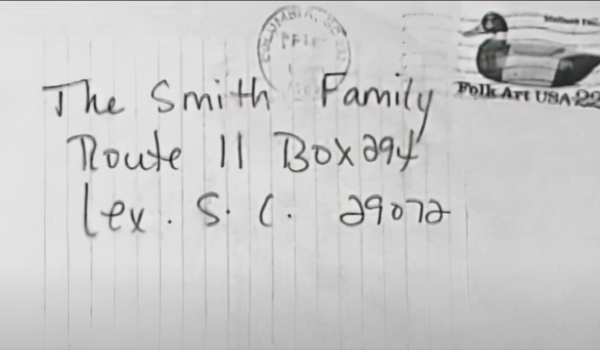 COLUMBIA, SC
Folk Art USA 22
The Smith Family
Route 11 Box 294
Lex. S. C. 29072